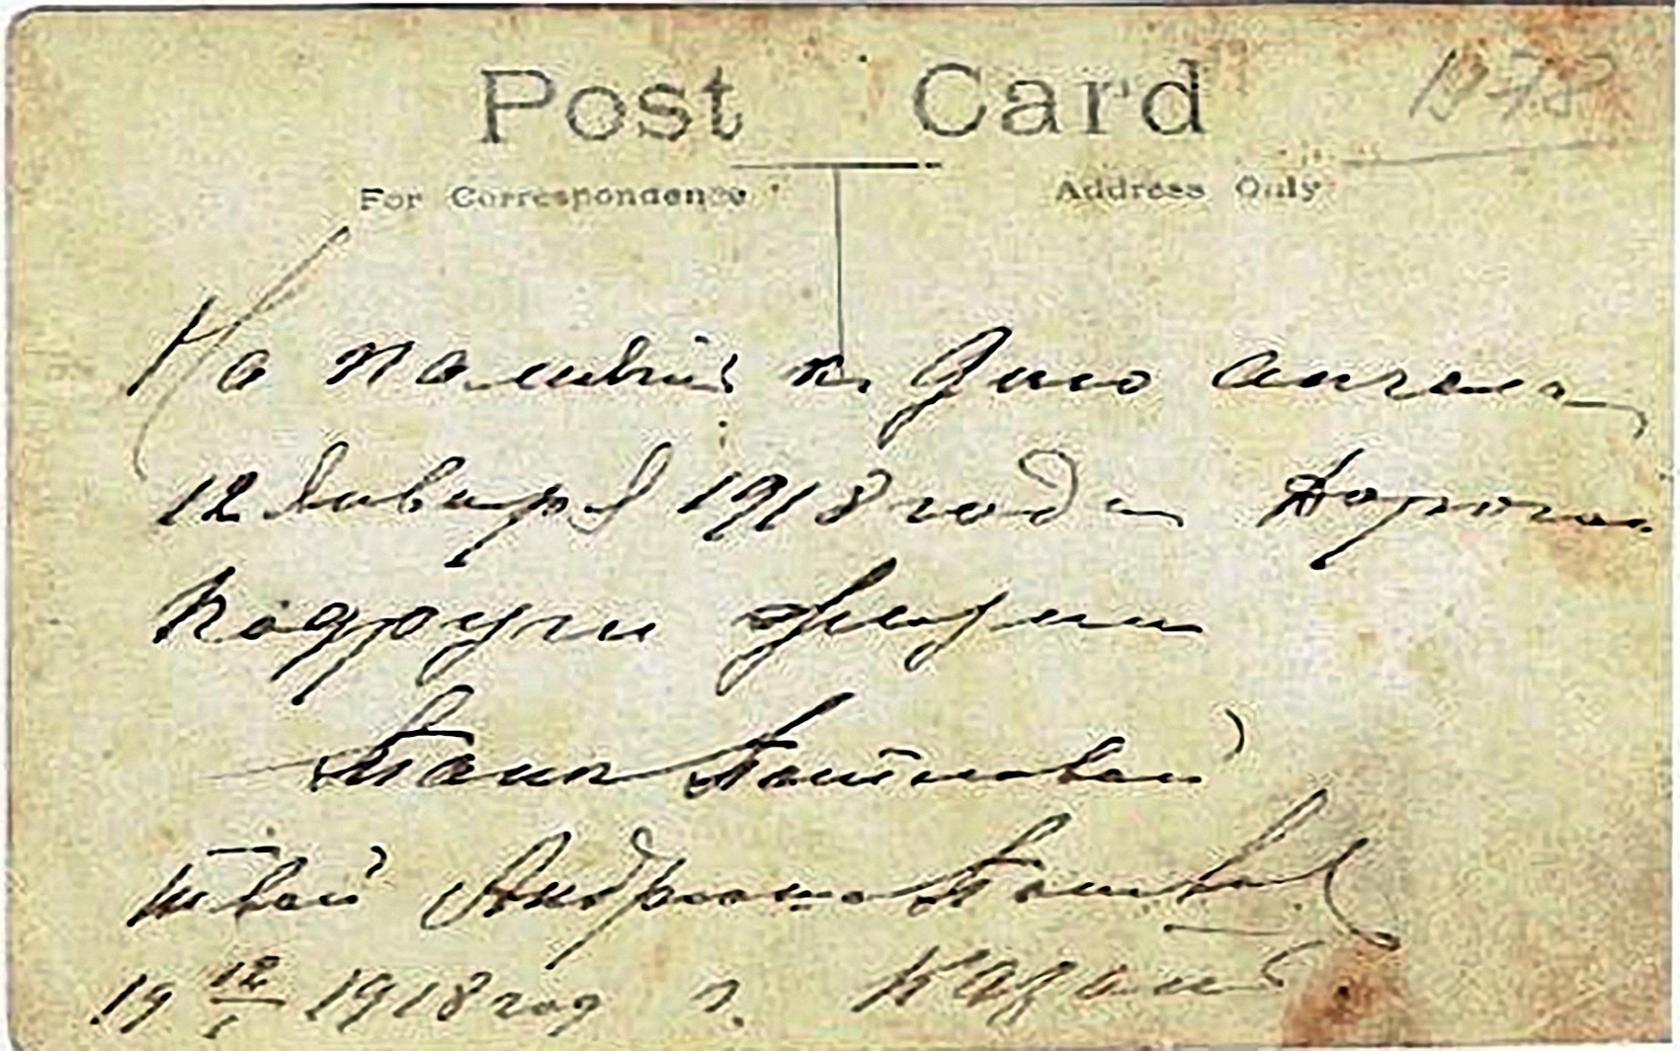 Post Card
1978
For Correspondence
Address Only
На память ко Дню ангела
12 Января 1918 года Дорогой
Подруги жизни
Тани
твой Андрюша
19 12/I 1918 год г. Казань